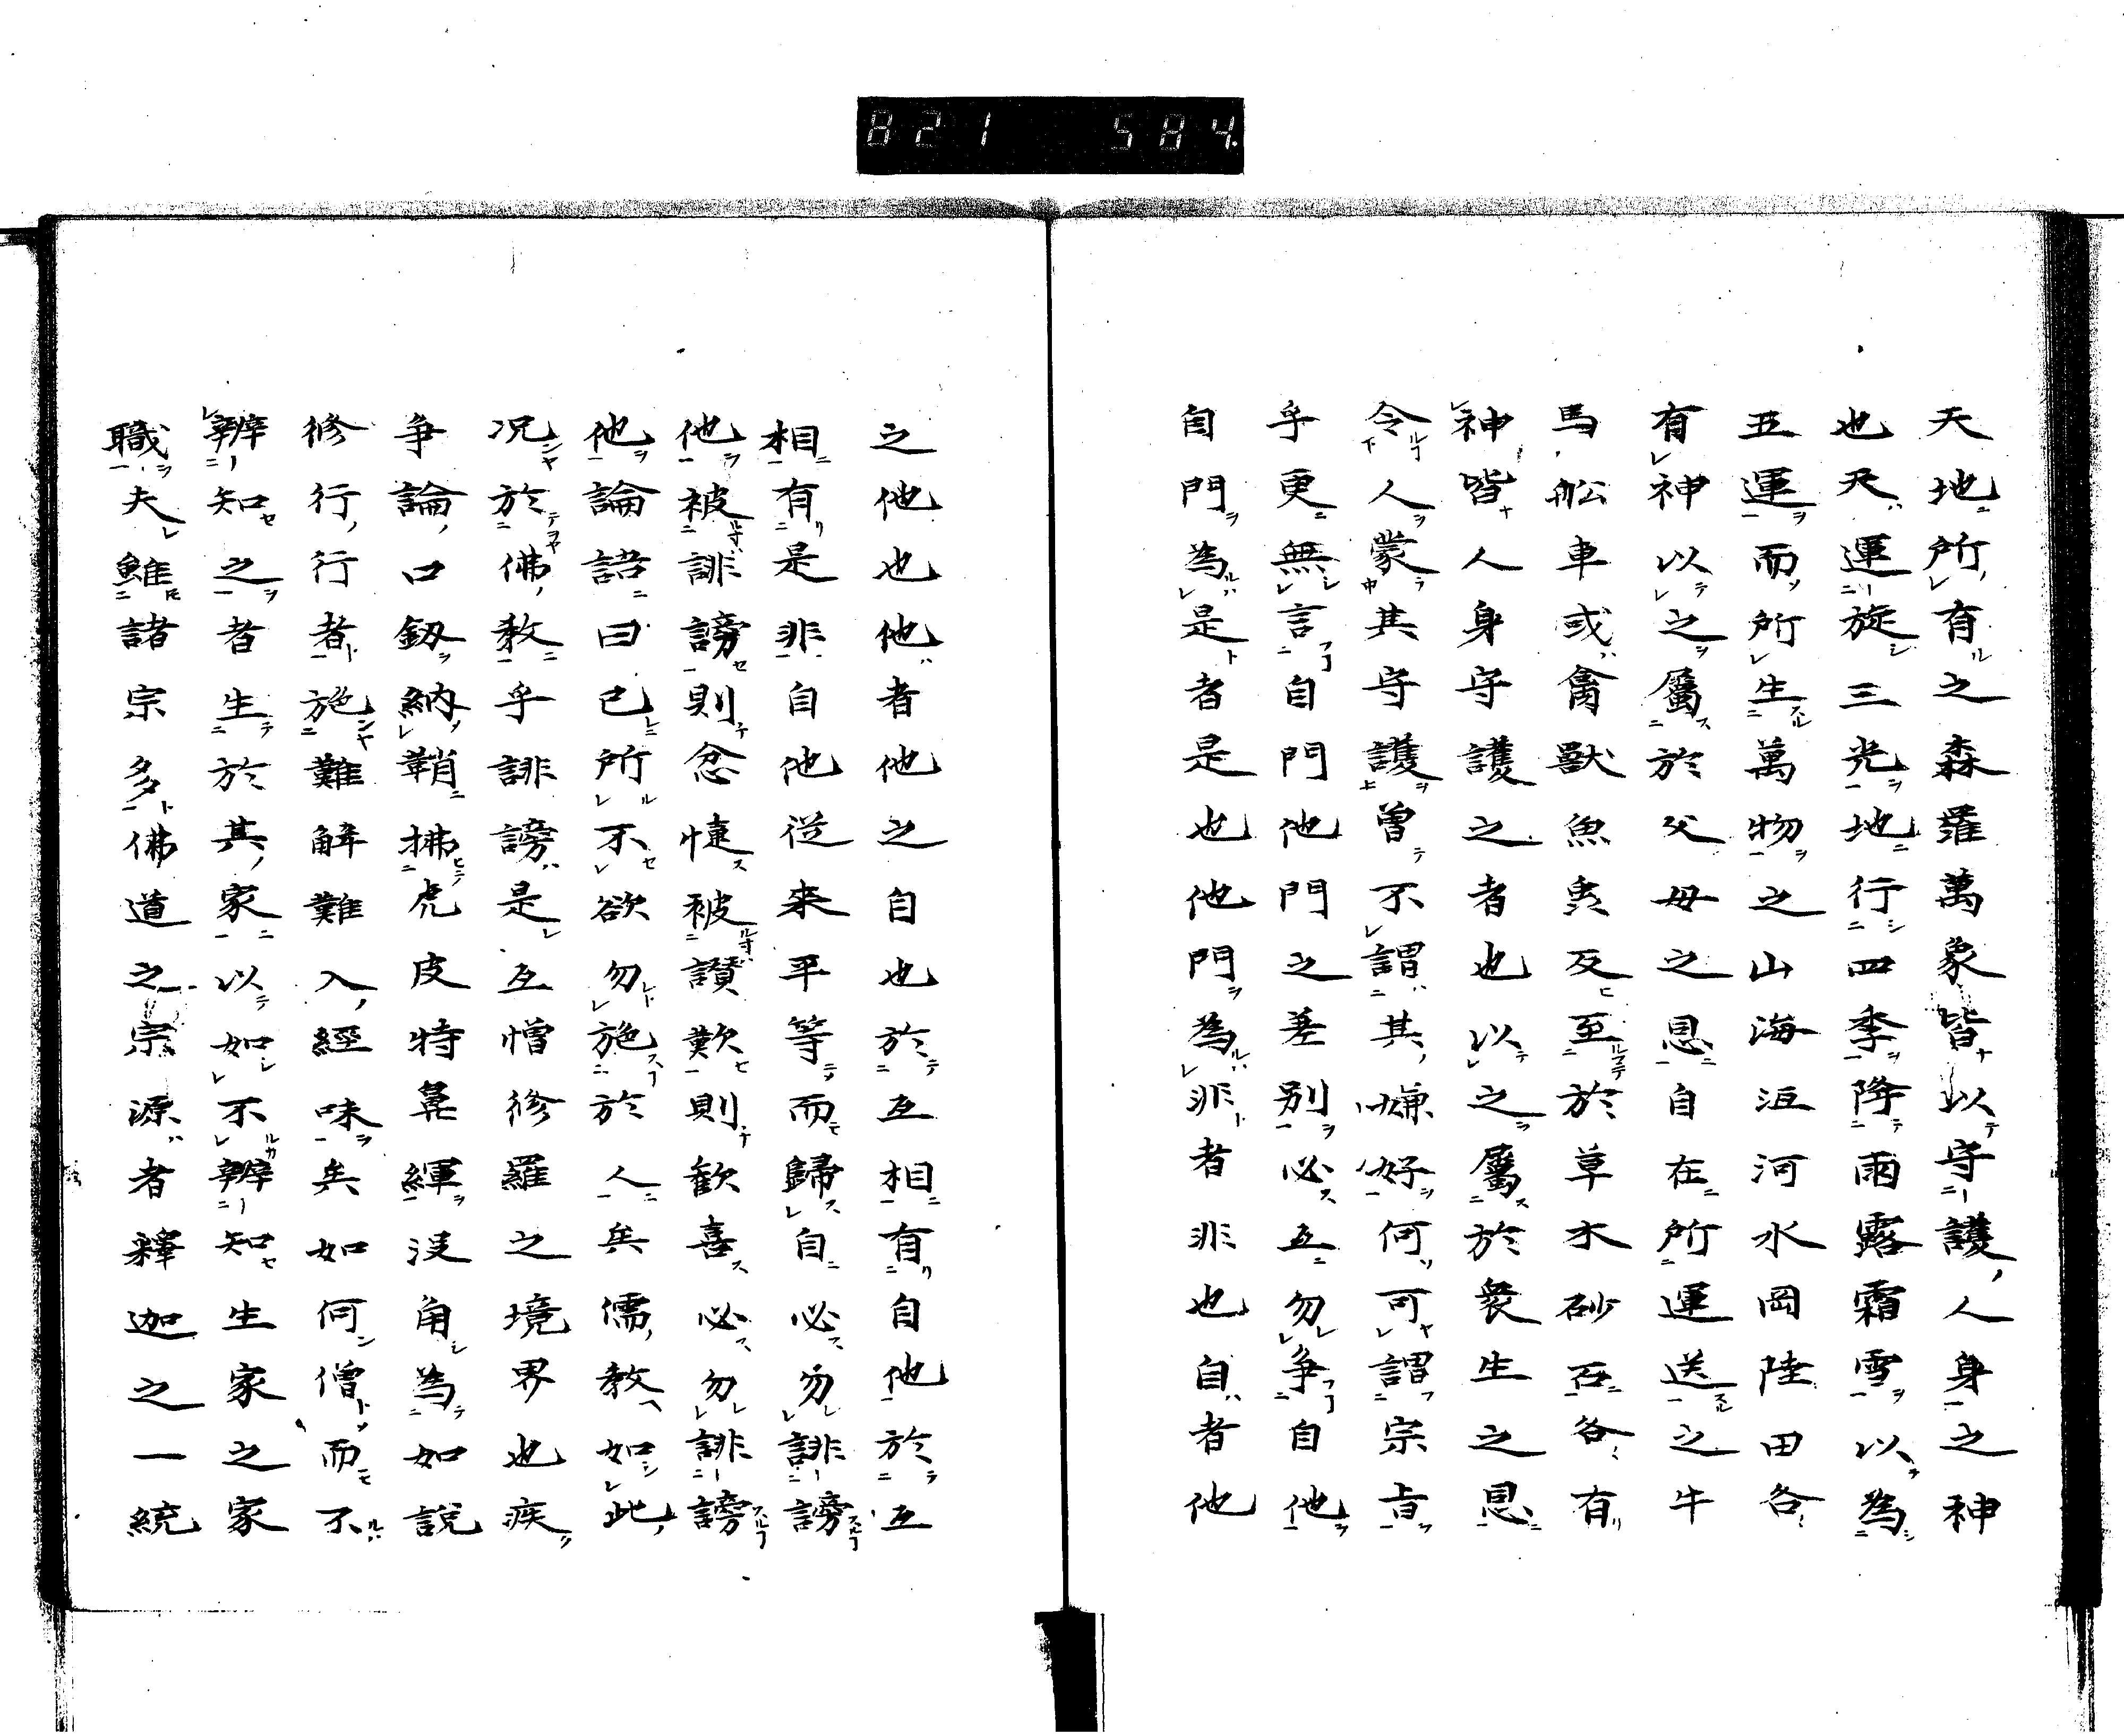 821 584.
天地所有之森羅萬象皆以守護人身之神
也天運旋三光地行四季降雨露霜雪以為
五運而所生萬物之山海江河水岡陸田各
有神以之屬於父母之恩自在所運送之牛
馬舩車或禽獸魚夷及至於草木砂石各有
神皆人身守護之者也以之屬於衆生之恩
令人蒙其守護曽不謂其嫌好何可謂宗旨
乎更無言自門他門之差別必互勿爭自他
自門為是者是也他門為非者非也自者他
之他也他者他之自也於互相有自他於互
相有是非自他從来平等而歸自必勿誹謗
他被誹謗則忿悽被讃歎則歓喜必勿誹謗
他論語曰已所不欲勿施於人矣儒教如此
况於佛教乎誹謗是互憎修羅之境界也疾
爭論口釼納鞘拂虎皮特鼻緷没角為如説
修行行者施難解難入經味矣如何僧而不
辨知之者生於其家以如不辨知生家之家
職夫雖諸宗多佛道之宗源者釋迦之一統